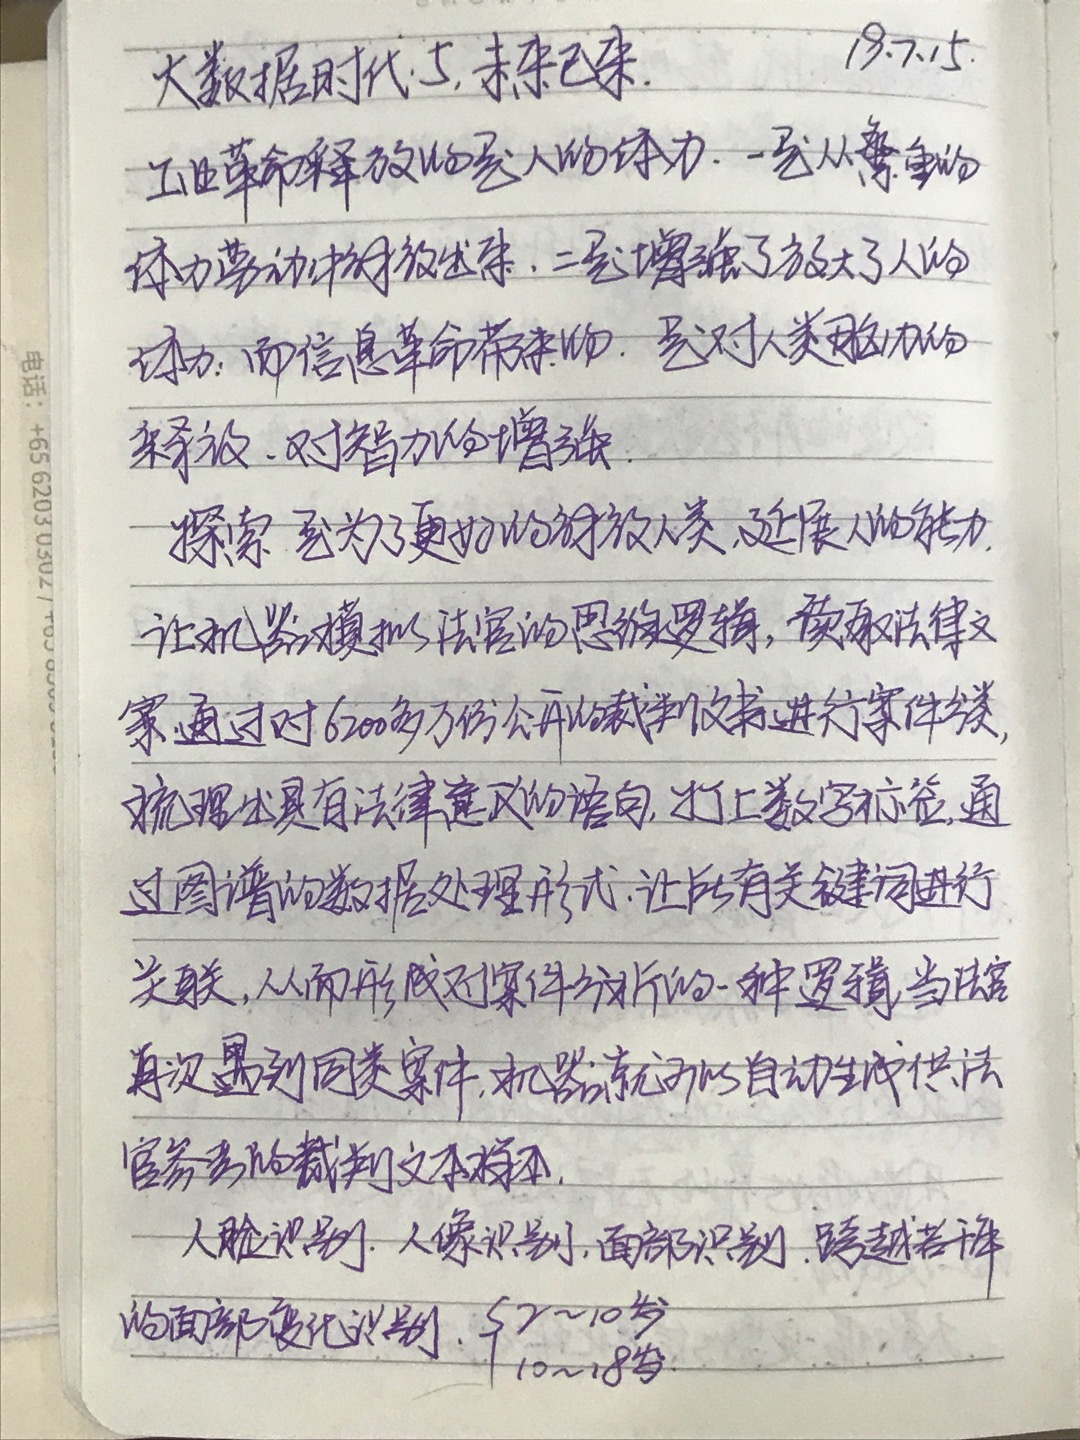 19.7.15.
大数据时代.5,未来已来.
工业革命释放的是人的体力.一是从繁重的
体力劳动中解放出来.二是增强了放大了人的
体力;而信息革命带来的.是对人类脑力的
释放.对智力的增强.
探索是为了更好的解放人类、延展人的能力.
让机器模拟法官的思维逻辑,读取法律文
案,通过对6200多万份公开的裁判文书进行案件分类,
梳理出具有法律意义的语句,打上数字标签,通
过图谱的数据处理形式.让所有关键词进行
关联,从而形成对案件分析的一种逻辑,当法官
再次遇到同类案件,机器就可以自动生成供法
官参考的裁判文本样本.
人脸识别.人像识别,面部识别.跨越若干年
的面部变化识别.
2~10岁
10~18岁.
电话:+65 6203 0302 /